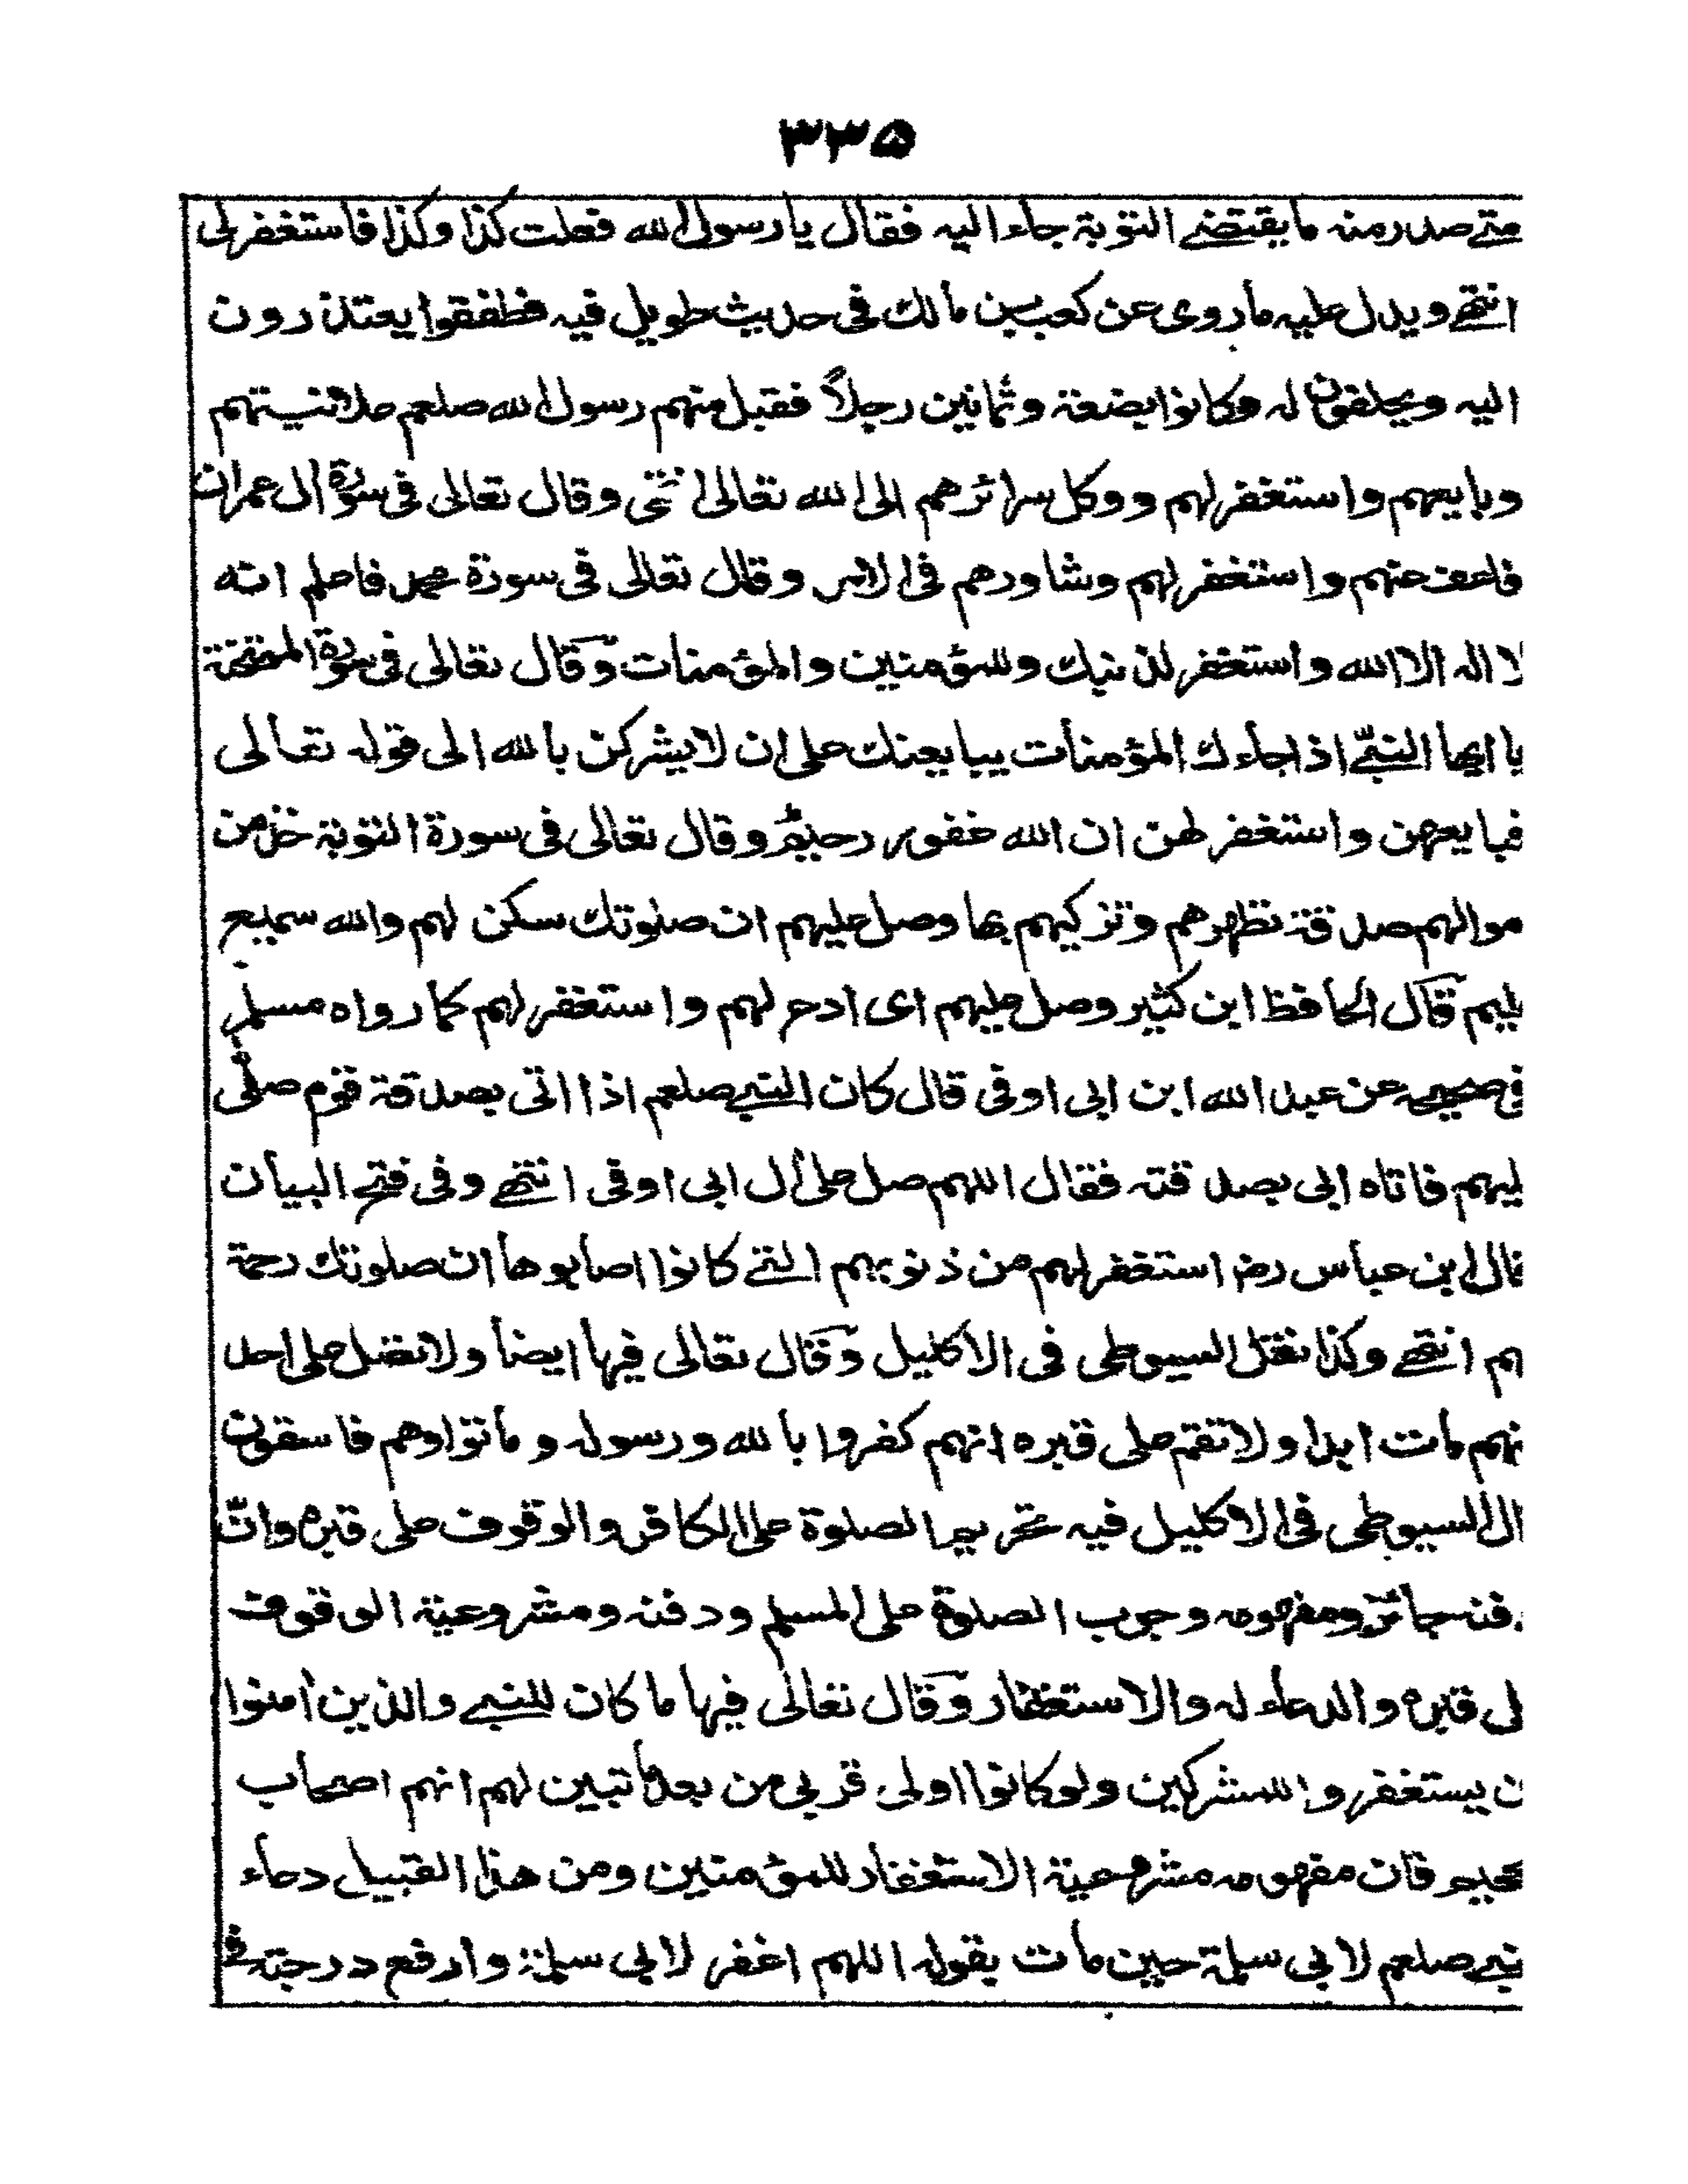 ٣٣٥
متے صدر منه ما يقتضے التوبة جاء اليه فقال يا رسول الله فعلت كذا وكذا فاستغفر لى
انتهے ويدل عليه ما روى عن كعب بن مالك فى حديث طويل فيه فطفقوا يعتذرون
اليه ويحلفون له وكانوا بضعة وثمانين رجلاً فقبل منهم رسول الله صلعم علانيتهم
وبايعهم واستغفر لهم ووكل سرائرهم الى الله تعالى انتهى وقال تعالى فى سورة ال عمران
فاعف عنهم واستغفر لهم وشاورهم فى الامر وقال تعالى فى سورة محمد فاعلم انه
لا اله الا الله واستغفر لذنبك وللمؤمنين والمؤمنات وقال تعالى فى سورة الممتحنة
يا ايها النبےّ اذا جاءك المؤمنات يبايعنك على ان لا يشركن بالله الى قوله تعالى
فبايعهن واستغفر لهن ان الله غفور رحيم وقال تعالى فى سورة التوبة خذ من
موالهم صدقة تطهرهم وتزكيهم بها وصل عليهم ان صلوتك سكن لهم والله سميع
ليم قال الحافظ ابن كثير وصل عليهم اى ادع لهم واستغفر لهم كما رواه مسلم
فى صحيحه عن عبد الله ابن ابى اوفى قال كان النبے صلعم اذا اتى بصدقة قوم صلّى
ليهم فاتاه ابى بصدقته فقال اللهم صل على أل ابى اوفى انتهے وفى فتح البيان
قال ابن عباس رض استغفر لهم من ذنوبهم التے كانوا اصابوها ان صلوتك رحمة
هم انتهے وكذا نقل السيوطى فى الاكليل وقال تعالى فيها ايضا ولا تصل على احد
نهم مات ابدا ولا تقم على قبره انهم كفروا بالله ورسوله وماتوا وهم فاسقون
ال السيوطى فى الاكليل فيه تحريم الصلوة على الكافر والوقوف على قبره وانّ
فنه جائز ومفهومه وجوب الصلوة على المسلم ودفنه ومشروعية الوقوف
لى قبره والدعاء له والاستغفار وقال تعالى فيها ما كان للنبے والذين أمنوا
ن يستغفروا للمشركين ولو كانوا اولى قربى من بعد ما تبين لهم انهم اصحاب
لجحيم فان مفهومه مشروعية الاستغفار للمؤمنين ومن هذا القبيل دعاء
نبے صلعم لابى سلمة حين مات بقوله اللهم اغفر لابى سلمة وارفع درجته فى